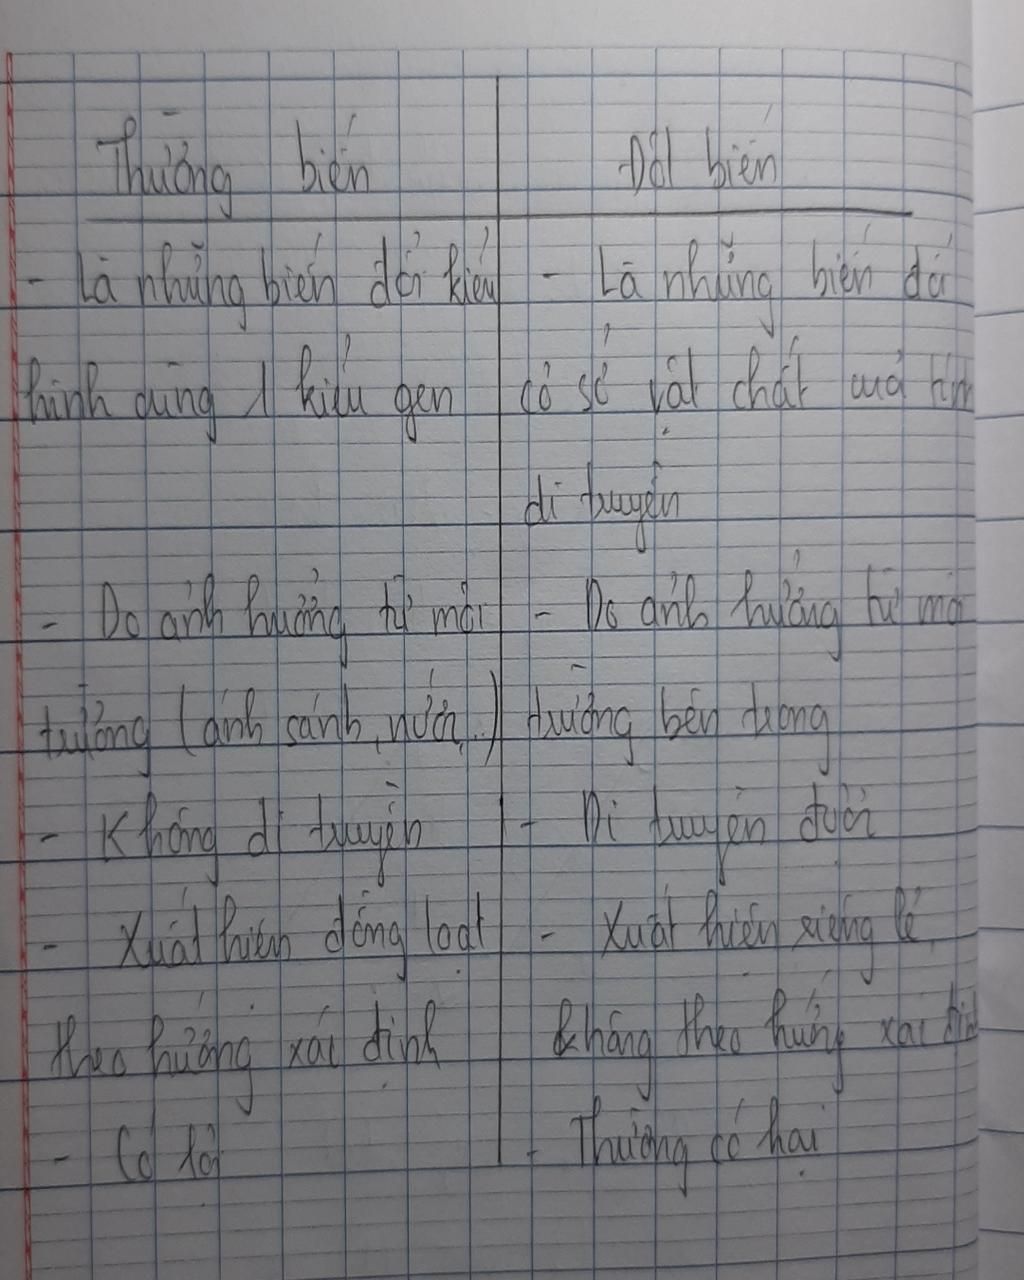 Thường biến
Đột biến
- Là những biến đổi kiểu
hình cùng 1 kiểu gen
- Do ảnh hưởng từ môi
trường (ánh sánh, nước,..)
- Không di truyền
- Xuất hiện đồng loạt
theo hướng xác định
- Có lợi
- Là những biến đổi
cơ sở vật chất của tính
di truyền
- Do ảnh hưởng từ môi
trường bên trong
- Di truyền được
- Xuất hiện riêng lẻ,
không theo hướng xác định
- Thường có hại